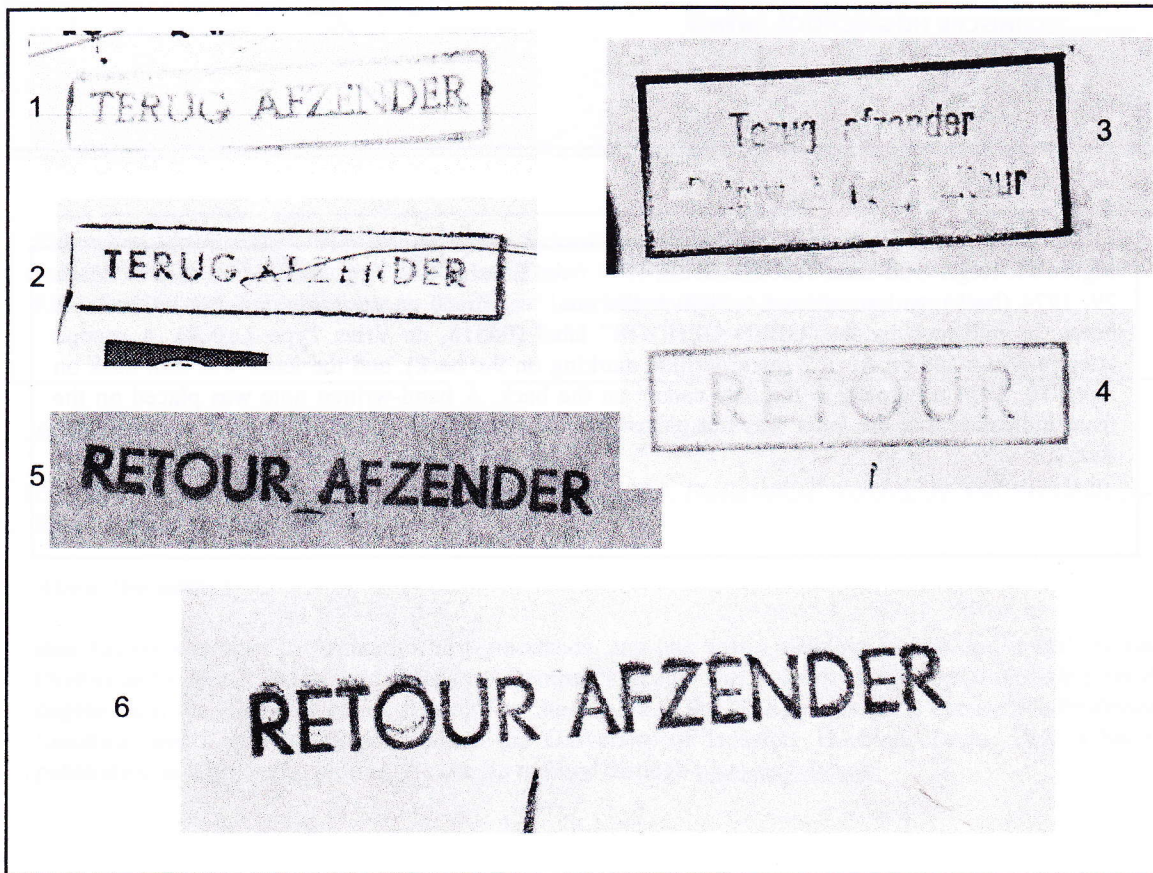 1
TERUG AFZENDER
2
TERUG AFZENDER
3
Terug afzender
4
RETOUR
5
RETOUR AFZENDER
6
RETOUR AFZENDER